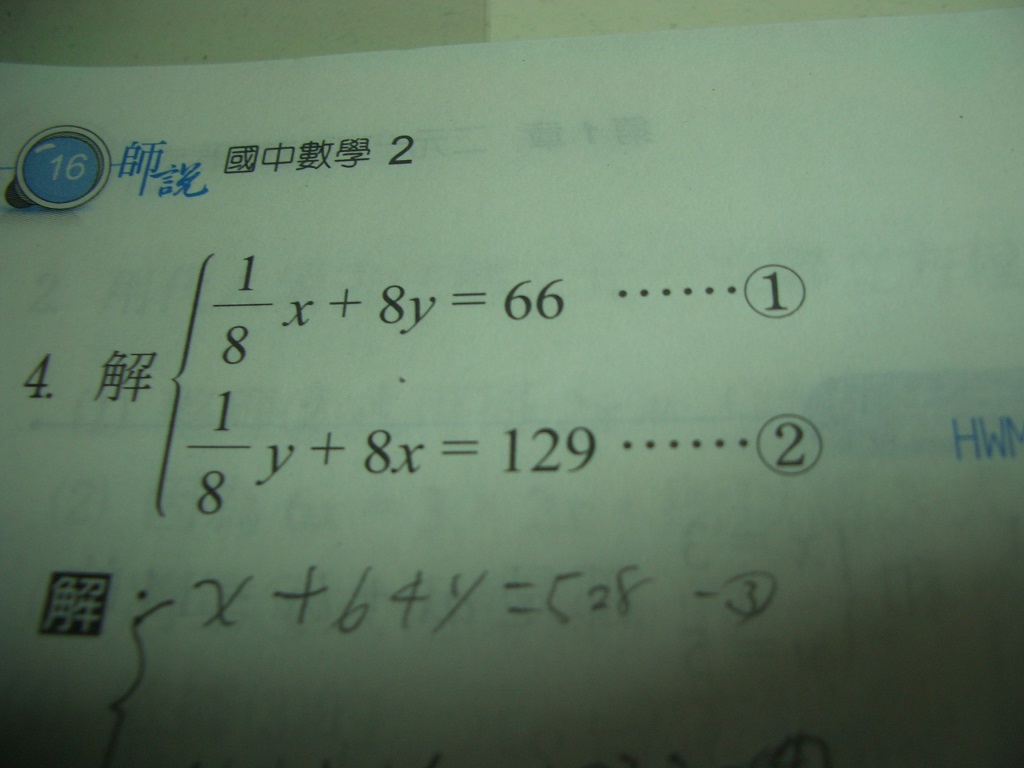 16 師説 國中數學 2
4. 解 { 1/8 x + 8y = 66 ……①
1/8 y + 8x = 129 ……②
HWM
解: { x + 64y = 528 - ③
④